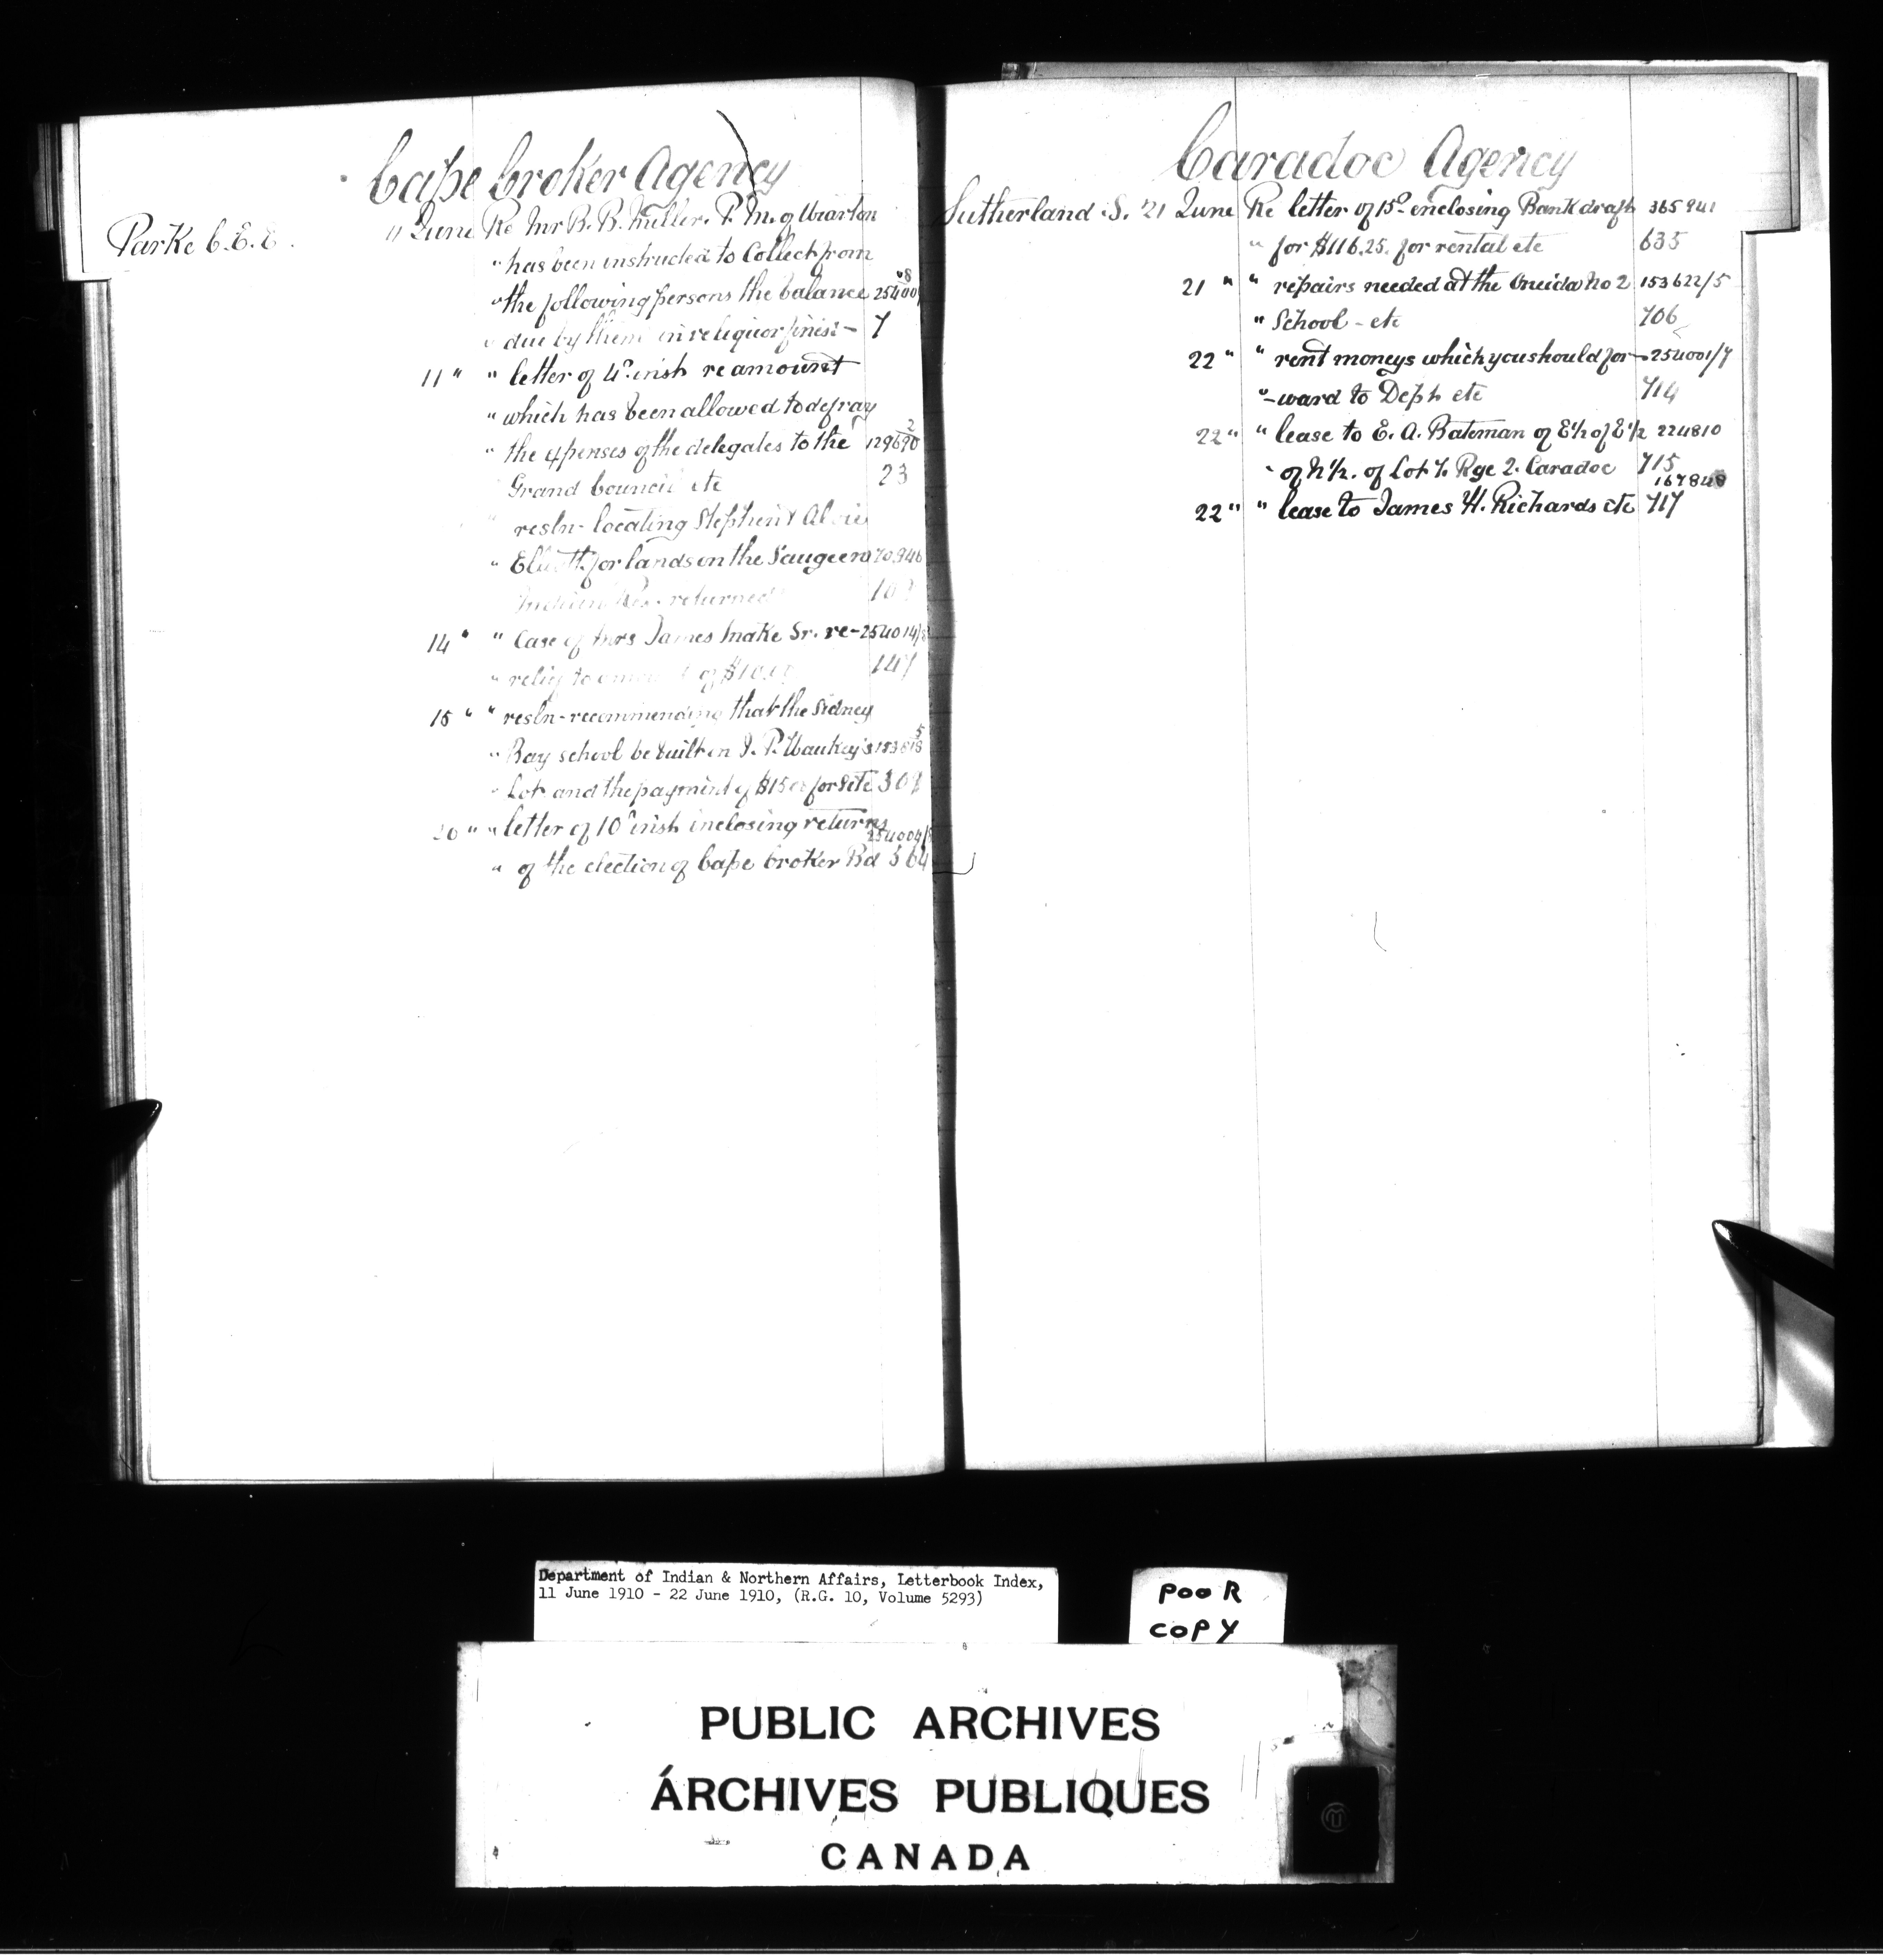 Cape Croker Agency
Parke C.E.E. 11 June Re Mr B. B. Miller. P. M. of Wiarton
" has been instructed to Collect from
" the following persons the balance 25400
" due by them in re liquor fines - 7
11 " " letter of 4º inst re amount
" which has been allowed to defray
" the expenses of the delegates to the 129690 2
Grand Council etc 23
" resln - locating Stephen &
" Elliott for lands on the Saugeen 70946
Indian Res. returned
14 " " Case of Mrs James Nake Sr. re - 254014/8
" relief to of $10.00 147
15 " " resln - recommending that the Sidney
" Bay school be built on J. P. Waukey's 153818 5
" Lot and the payment of $15 for site 309
20 " " letter of 10º inst inclosing returns
254004/8
" of the election of Cape Croker Bd 564
Caradoc Agency
Sutherland S. 21 June Re letter of 15º enclosing Bank draft 365941
" for $116.25. for rental etc 635
21 " " repairs needed at the Oneida No 2 153622/5
" School - etc 706
22 " " rent moneys which you should for- 254001/7
" -ward to Dept etc 714
22 " " lease to E. A. Bateman of E½ of E½ 224810
" of N½. of Lot 7. Rge 2. Caradoc 715
167848
22 " " lease to James H. Richards etc 717
Department of Indian & Northern Affairs, Letterbook Index,
11 June 1910 - 22 June 1910, (R.G. 10, Volume 5293)
POOR
COPY
PUBLIC ARCHIVES
ÁRCHIVES PUBLIQUES
CANADA